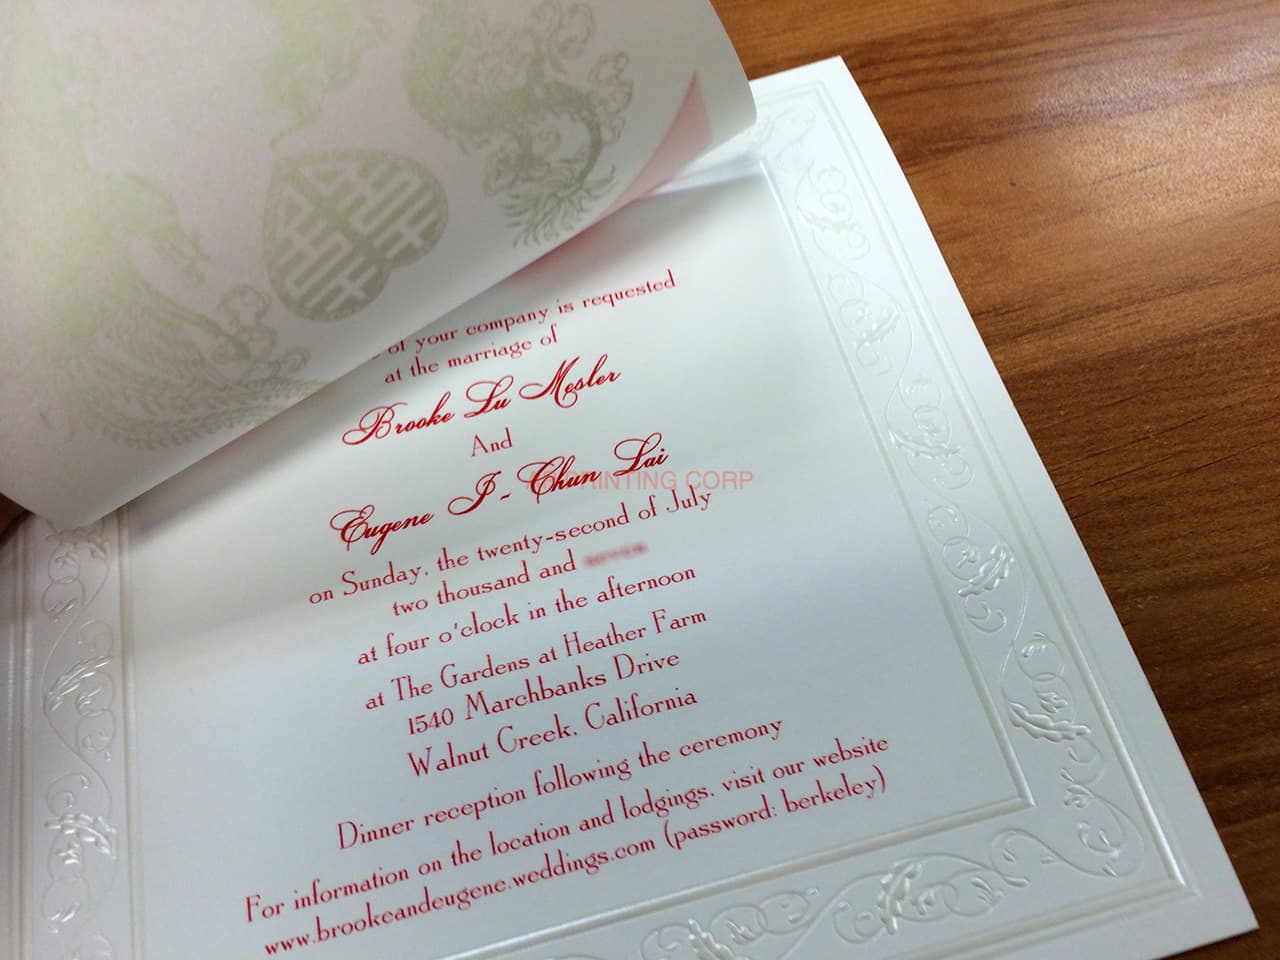 of your company is requested
at the marriage of
Brooke Lu Mesler
And
Eugene I-Chun Lai
PRINTING CORP
on Sunday, the twenty-second of July
two thousand and
at four o'clock in the afternoon
at The Gardens at Heather Farm
1540 Marchbanks Drive
Walnut Creek, California
Dinner reception following the ceremony
For information on the location and lodgings, visit our website
www.brookeandeugene.weddings.com (password: berkeley)